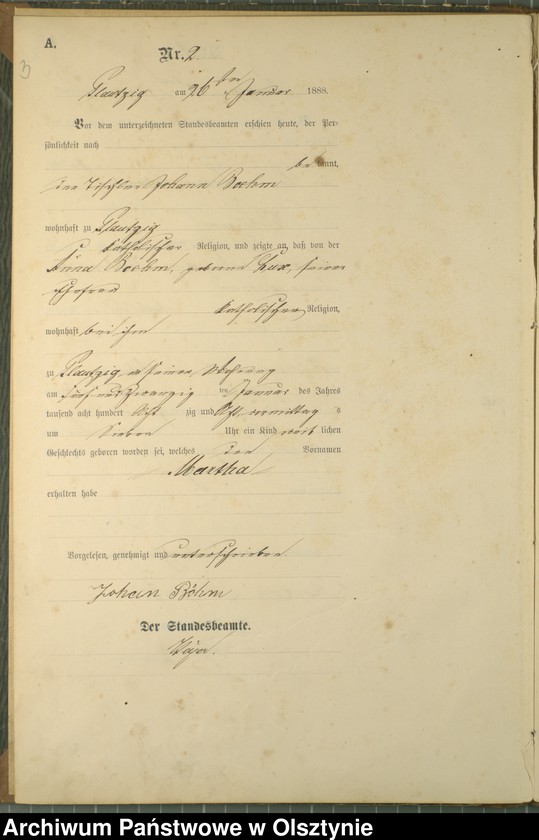 A.
3
Nr. 2.
Plautzig am 26ten Januar 1888.
Vor dem unterzeichneten Standesbeamten erschien heute, der Per-
sönlichkeit nach
bekannt,
der Tischler Johann Boehm
wohnhaft zu Plautzig
katholischer Religion, und zeigte an, daß von der
Anna Boehm, geborne Lux, seiner
Ehefrau
katholischer Religion,
wohnhaft bei ihm
zu Plautzig in seiner Wohnung
am fünf und zwanzig ten Januar des Jahres
tausend acht hundert acht zig und acht, vormittag s
um sieben Uhr ein Kind weib lichen
Geschlechts geboren worden sei, welches den Vornamen
Martha
erhalten habe
Vorgelesen, genehmigt und unterschrieben.
Johan Böhm
Der Standesbeamte.
Archiwum Państwowe w Olsztynie